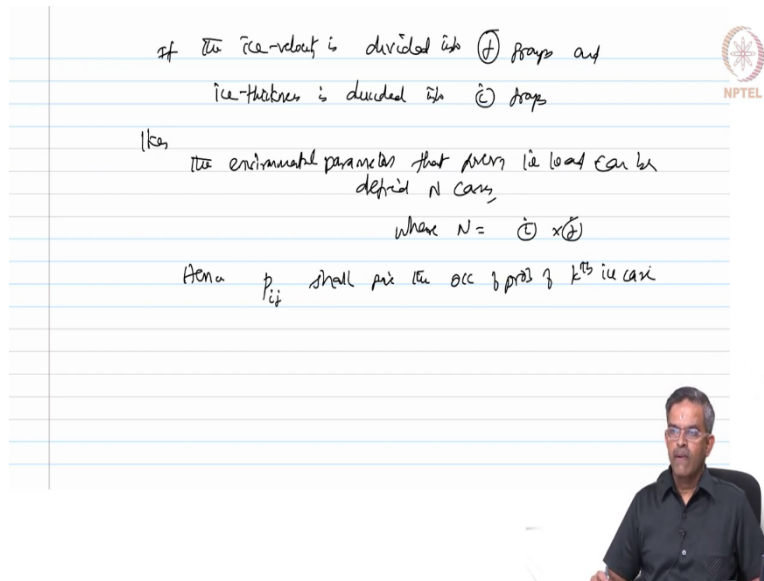 If the ice-velocity is divided into j groups and
NPTEL
ice-thickness is divided into i groups
then
the environmental parameters that govern ice load can be
defined N cases,
where N = i × j
Hence p_ij shall give the occ of prob of kth ice case